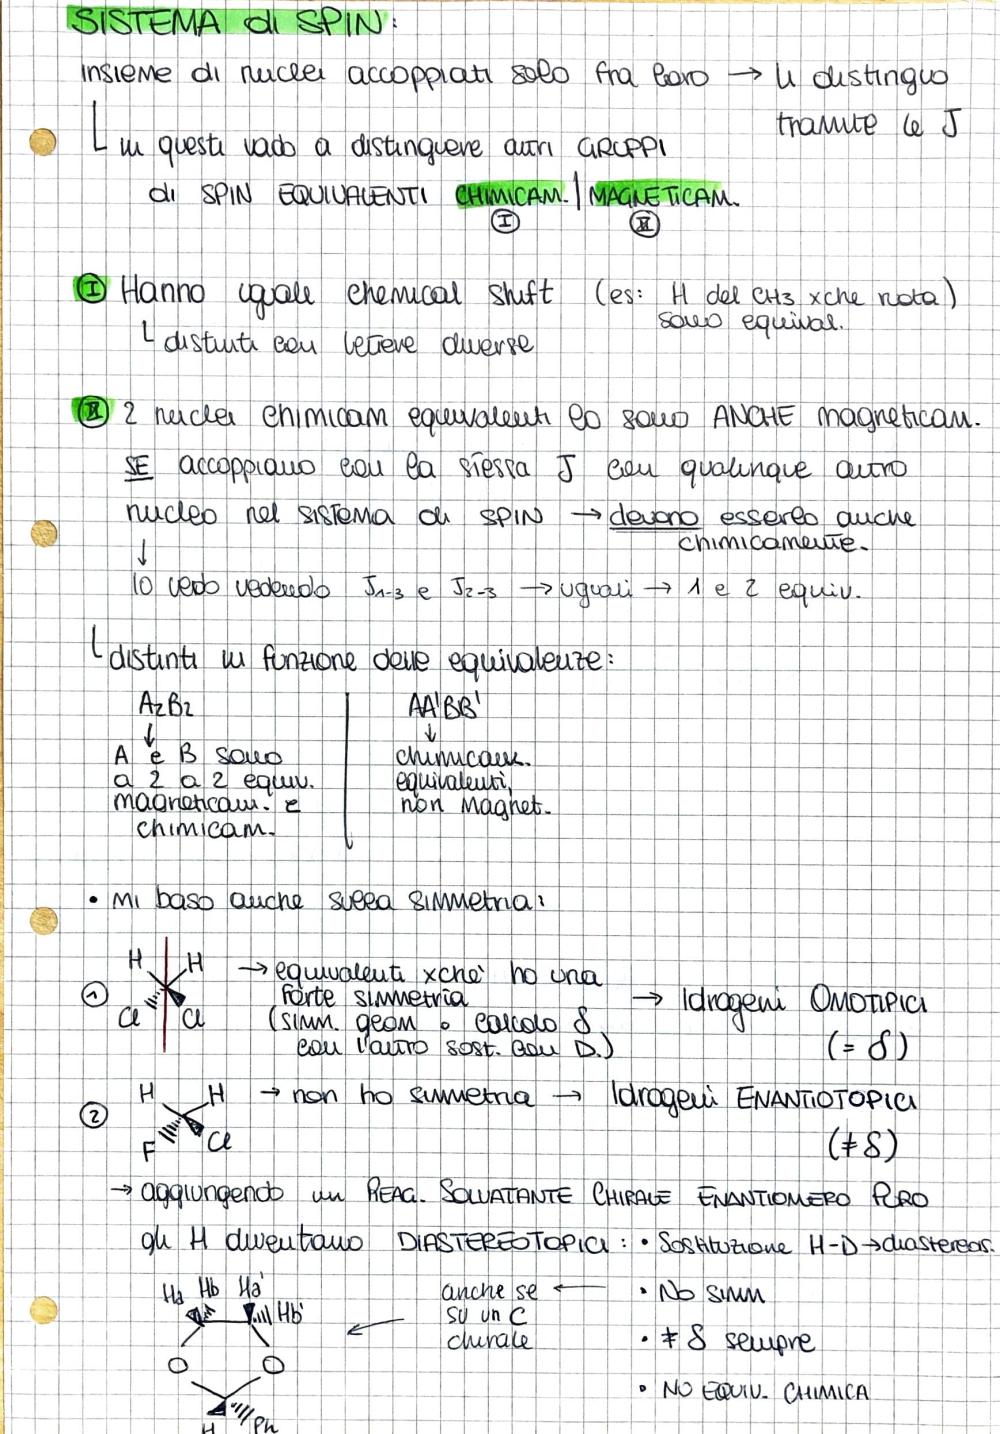 SISTEMA di SPIN:
insieme di nuclei accoppiati solo fra loro → li distinguo
tramite le J
in questi vado a distinguere altri GRUPPI
di SPIN EQUIVALENTI CHIMICAM. | MAGNETICAM.
I II
I Hanno uguale chemical shift (es: H del CH3 xche ruota)
sono equival.
distinti con lettere diverse
II 2 nuclei chimicam equivalenti lo sono ANCHE magneticam.
SE accoppiano con la stessa J con qualunque altro
nucleo nel SISTEMA di SPIN → devono esserlo anche
chimicamente.
↓
lo vedo vedendo J1-3 e J2-3 → uguali → 1 e 2 equiv.
distinti in funzione delle equivalenze:
A2B2 AA'BB'
↓ ↓
A e B sono chimicam.
a 2 a 2 equiv. equivalenti,
magneticam. e non magnet.
chimicam.
• Mi baso anche sulla simmetria:
1 H H Cl Cl → equivalenti xchè ho una
forte simmetria → Idrogeni OMOTIPICI
(simm. geom o calcolo δ (= δ)
con l'altro sost. con D.)
2 H H F Cl → non ho simmetria → Idrogeni ENANTIOTOPICI
(≠ δ)
→ aggiungendo un REAG. SOLVATANTE CHIRALE ENANTIOMERO PURO
gli H diventano DIASTEREOTOPICI: • Sostituzione H-D → diastereos.
Ha Hb Ha' Hb' anche se ← • No simm
su un C
← chirale • ≠ δ sempre
O O
• NO EQUIV. CHIMICA
H Ph